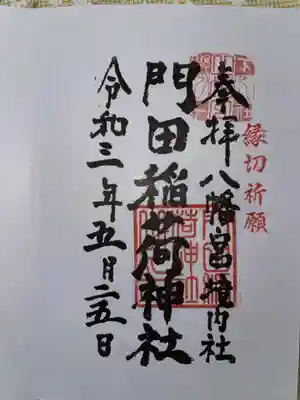 奉拝 八幡宮境内社
縁切祈願
門田稲荷神社
令和三年五月二五日